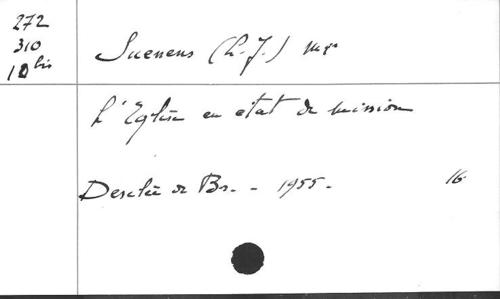 272
310
10 bis
Suenens (L.-J.) Mgr
L'Eglise en état de mission
Desclée de Br. - 1955 -
16